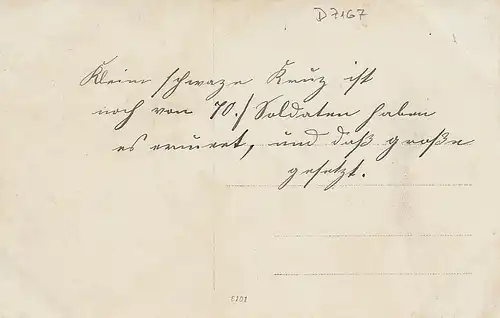 D7167
Kleine schwaze Kruz ist
noch von 70./ Soldaten haben
es erneuert, und daß große
gesetzt.